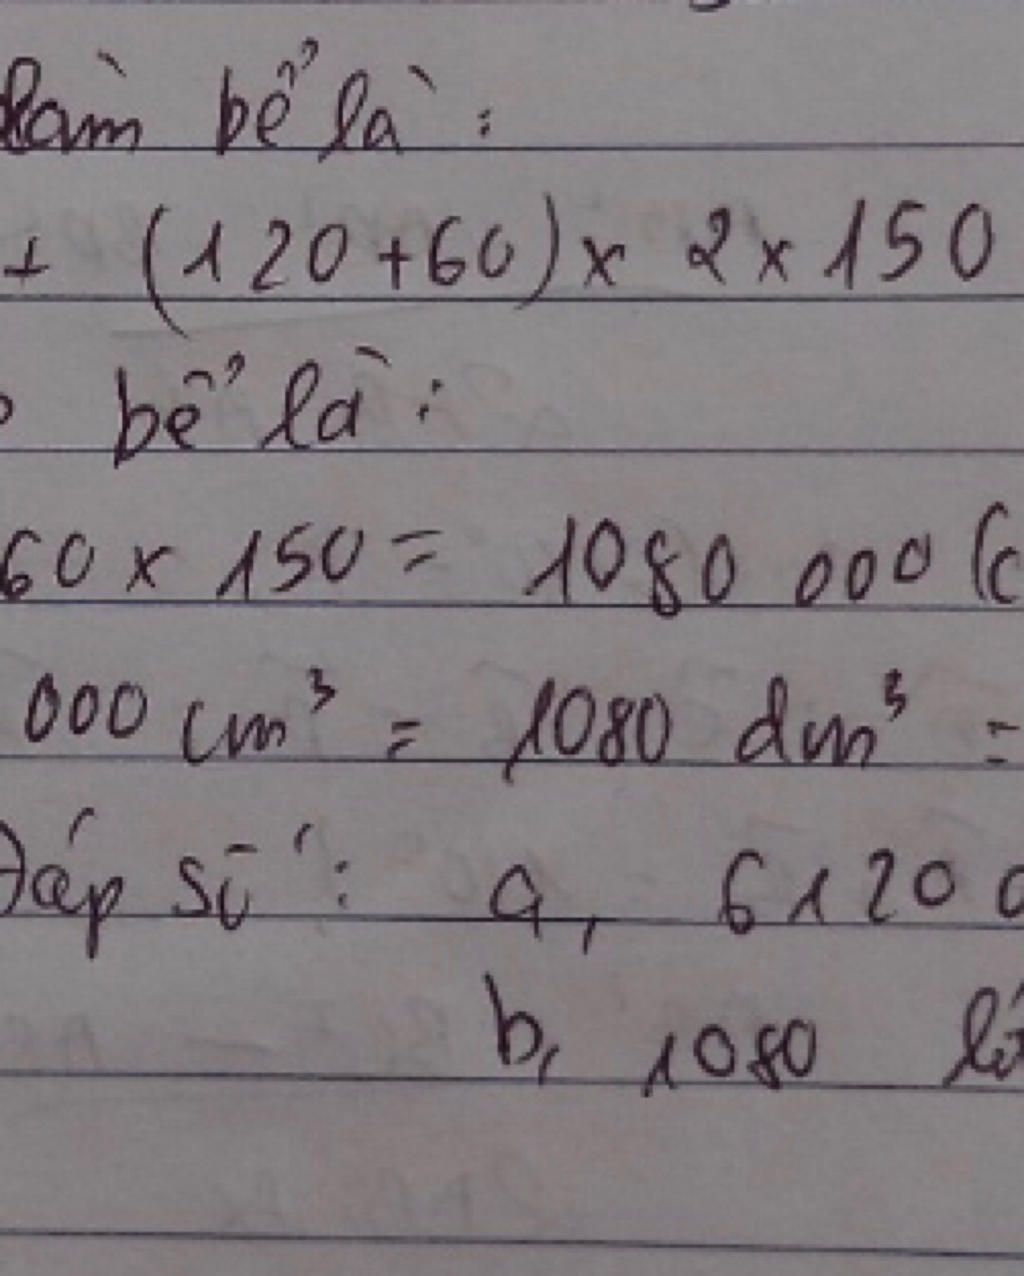 làm bể là :
+ (120+60) x 2 x 150
bể là :
60 x 150 = 1080 000 (c
000 cm³ = 1080 dm³ =
Đáp số : a, 6120
b, 1080 lí